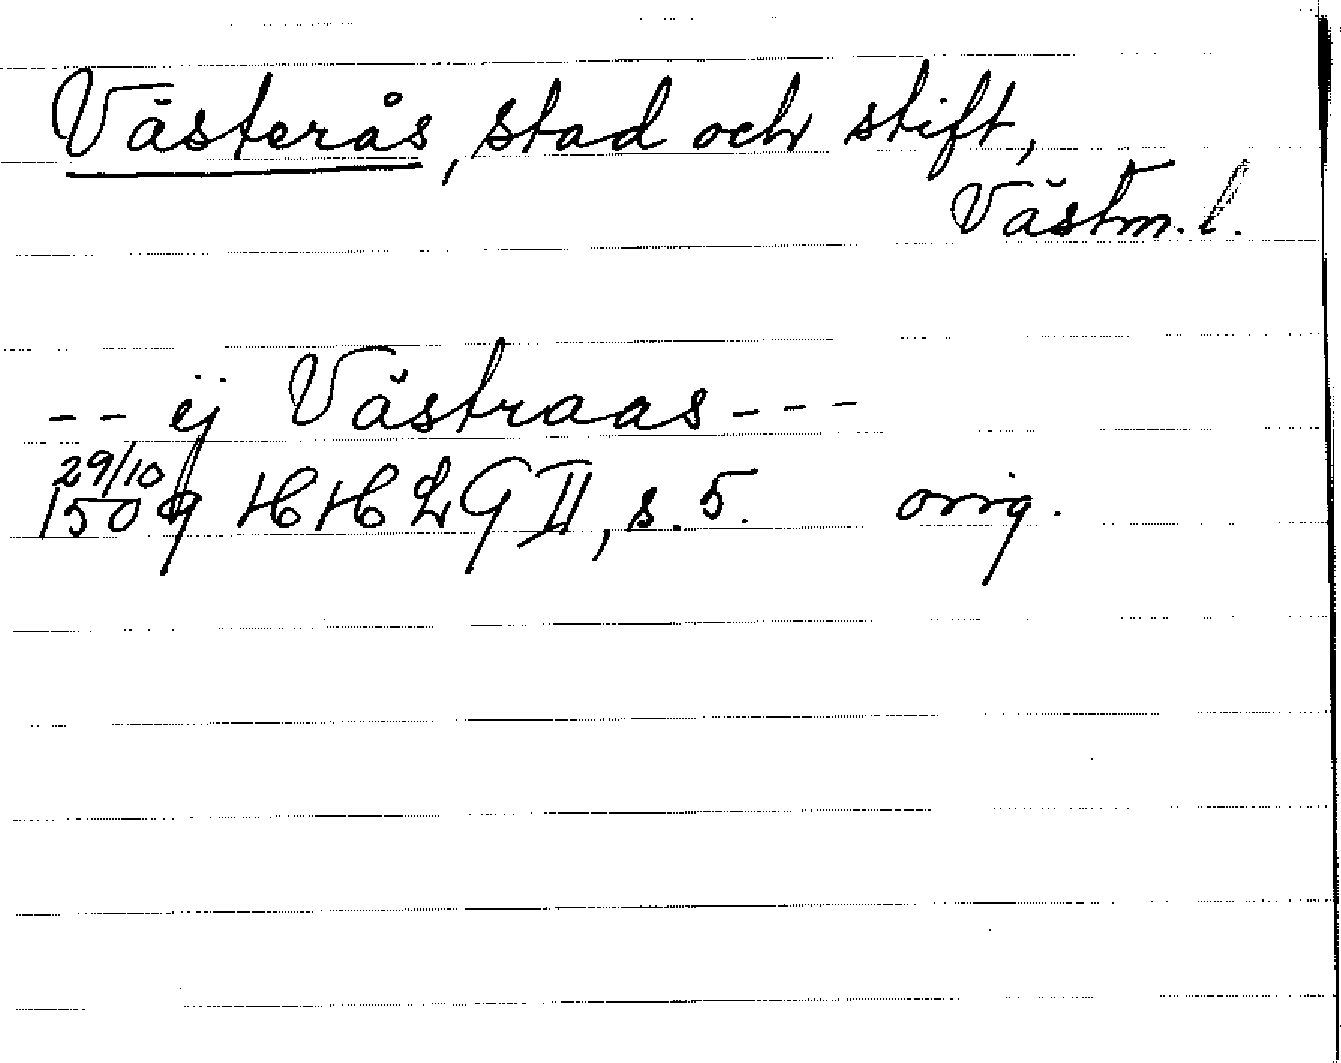 Västerås, stad och stift,
Västm. l.
-- ej Västraas ---
29/10
1509 HHLG II, s. 5. orig.